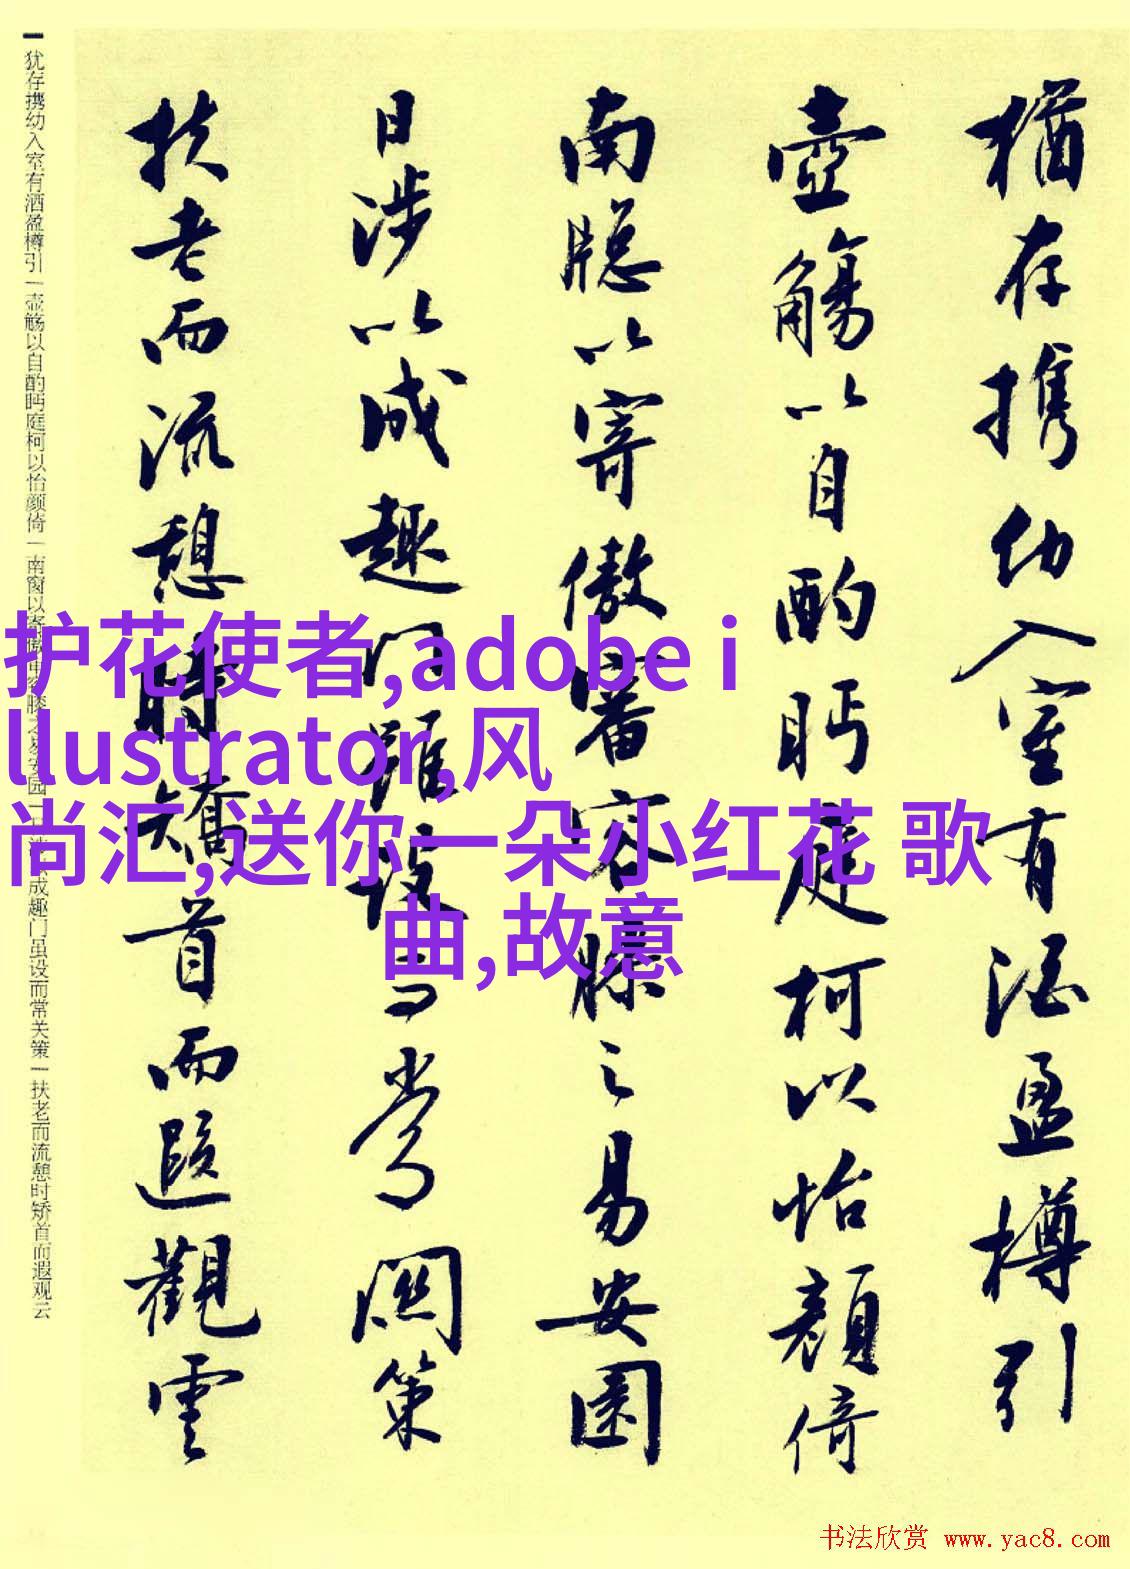 猶存携幼入室有酒盈樽引
壺觴以自酌眄庭柯以怡顏倚
南牕以寄傲審容膝之易安園
日涉以成趣門雖設而常關策
扶老而流憩時矯首而遐觀雲
犹存携幼入室有洒盈樽引一壶觞以自酌眄庭柯以怡颜倚一南窗以寄傲审容膝之易安园一日涉以成趣门虽设而常关策一扶老而流憩时矫首而遐观云
护花使者,adobe i
llustrator,风
尚汇,送你一朵小红花 歌
曲,故意
书法欣赏 www.yac8.com